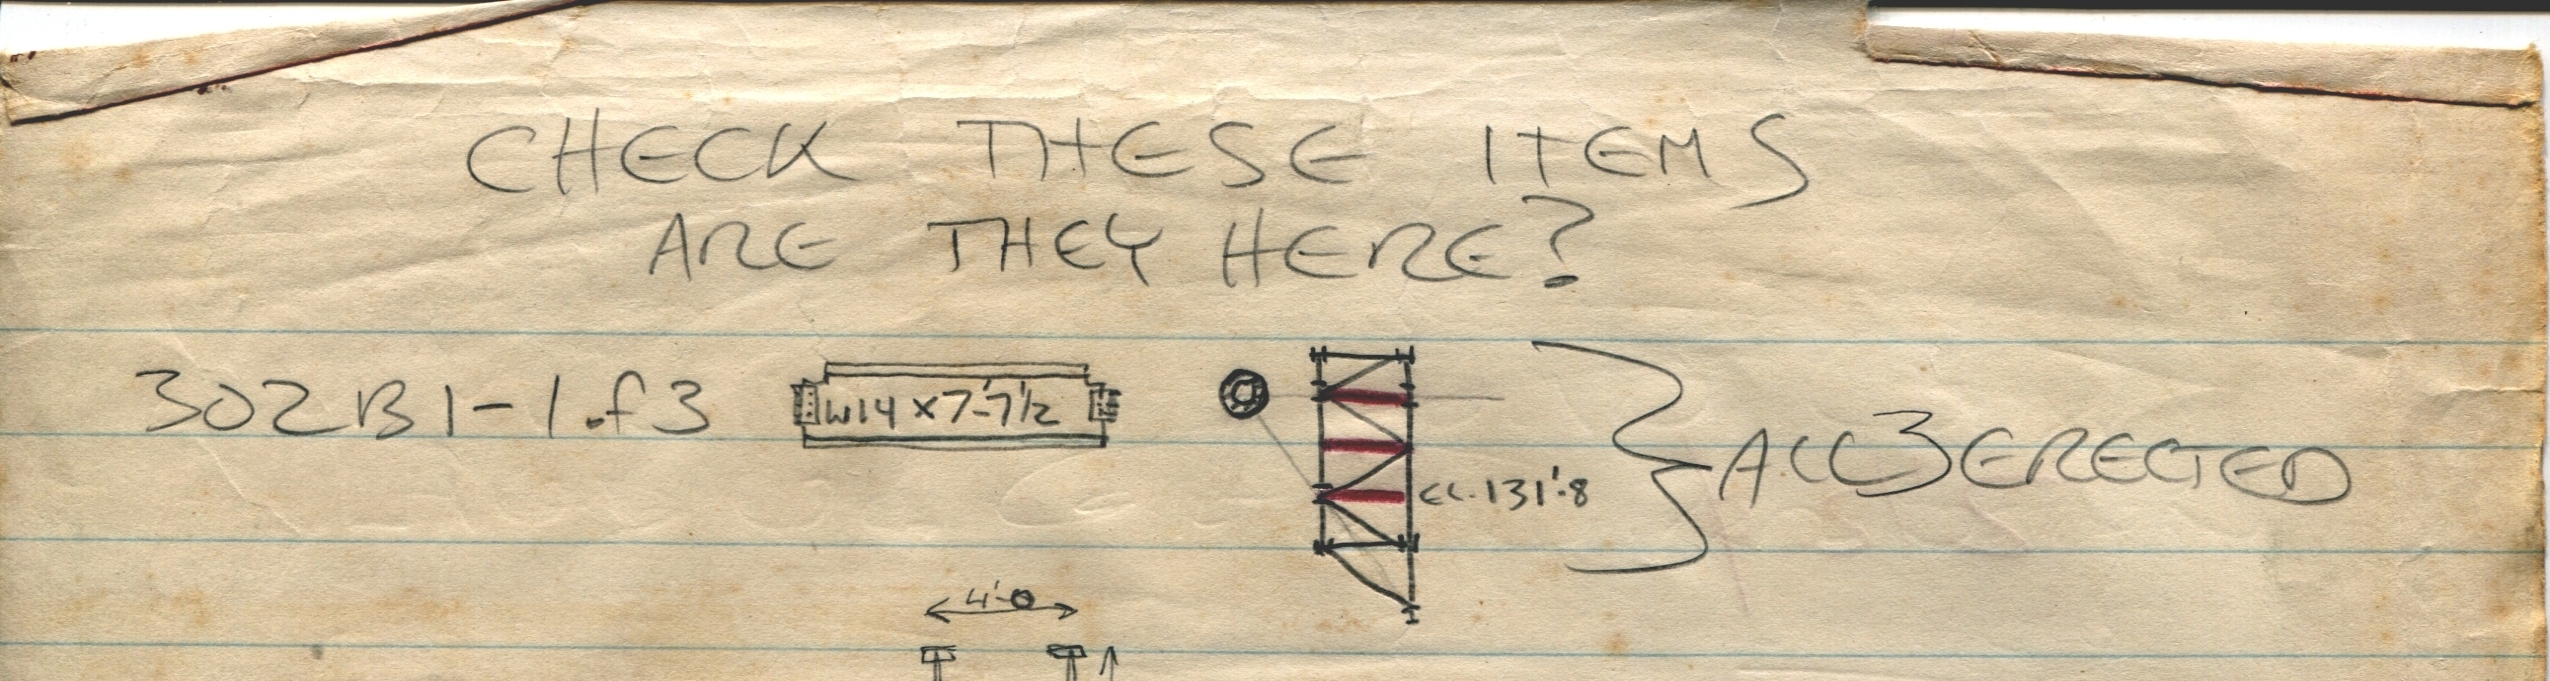 CHECK THESE ITEMS
ARE THEY HERE?
302B1-1.f3
W14 x 7'-7 1/2
EL. 131'-8
ALL 3 ERECTED
4'-0